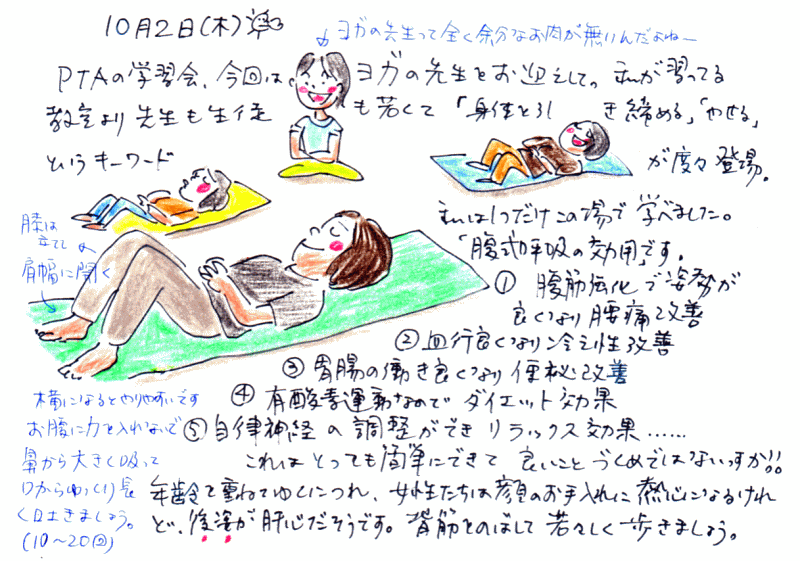 10月2日(木)
ヨガの先生って全く余分なお肉が無いんだよねー
PTAの学習会、今回は ヨガの先生をお迎えして。私が習ってる
教室より先生も生徒も若くて「身体を引き締める」「やせる」
というキーワードが度々登場。
私は1つだけこの場で学べました。
「腹式呼吸の効用」です。
① 腹筋強化で姿勢が
良くなり腰痛改善
② 血行良くなり冷え性改善
③ 胃腸の働き良くなり便秘改善
④ 有酸素運動なので ダイエット効果
⑤ 自律神経の調整ができ リラックス効果……
これは とっても簡単にできて 良いことづくめではないっすか!!
年齢を重ねてゆくにつれ、女性たちは顔のお手入れに熱心になるけれ
ど、後姿が肝心だそうです。背筋をのばして 若々しく歩きましょう。
膝は
立てて
肩幅に開く
横になるとやりやすいです
お腹に力を入れないで
鼻から大きく吸って
口からゆっくり長
く吐きましょう。
(10〜20回)